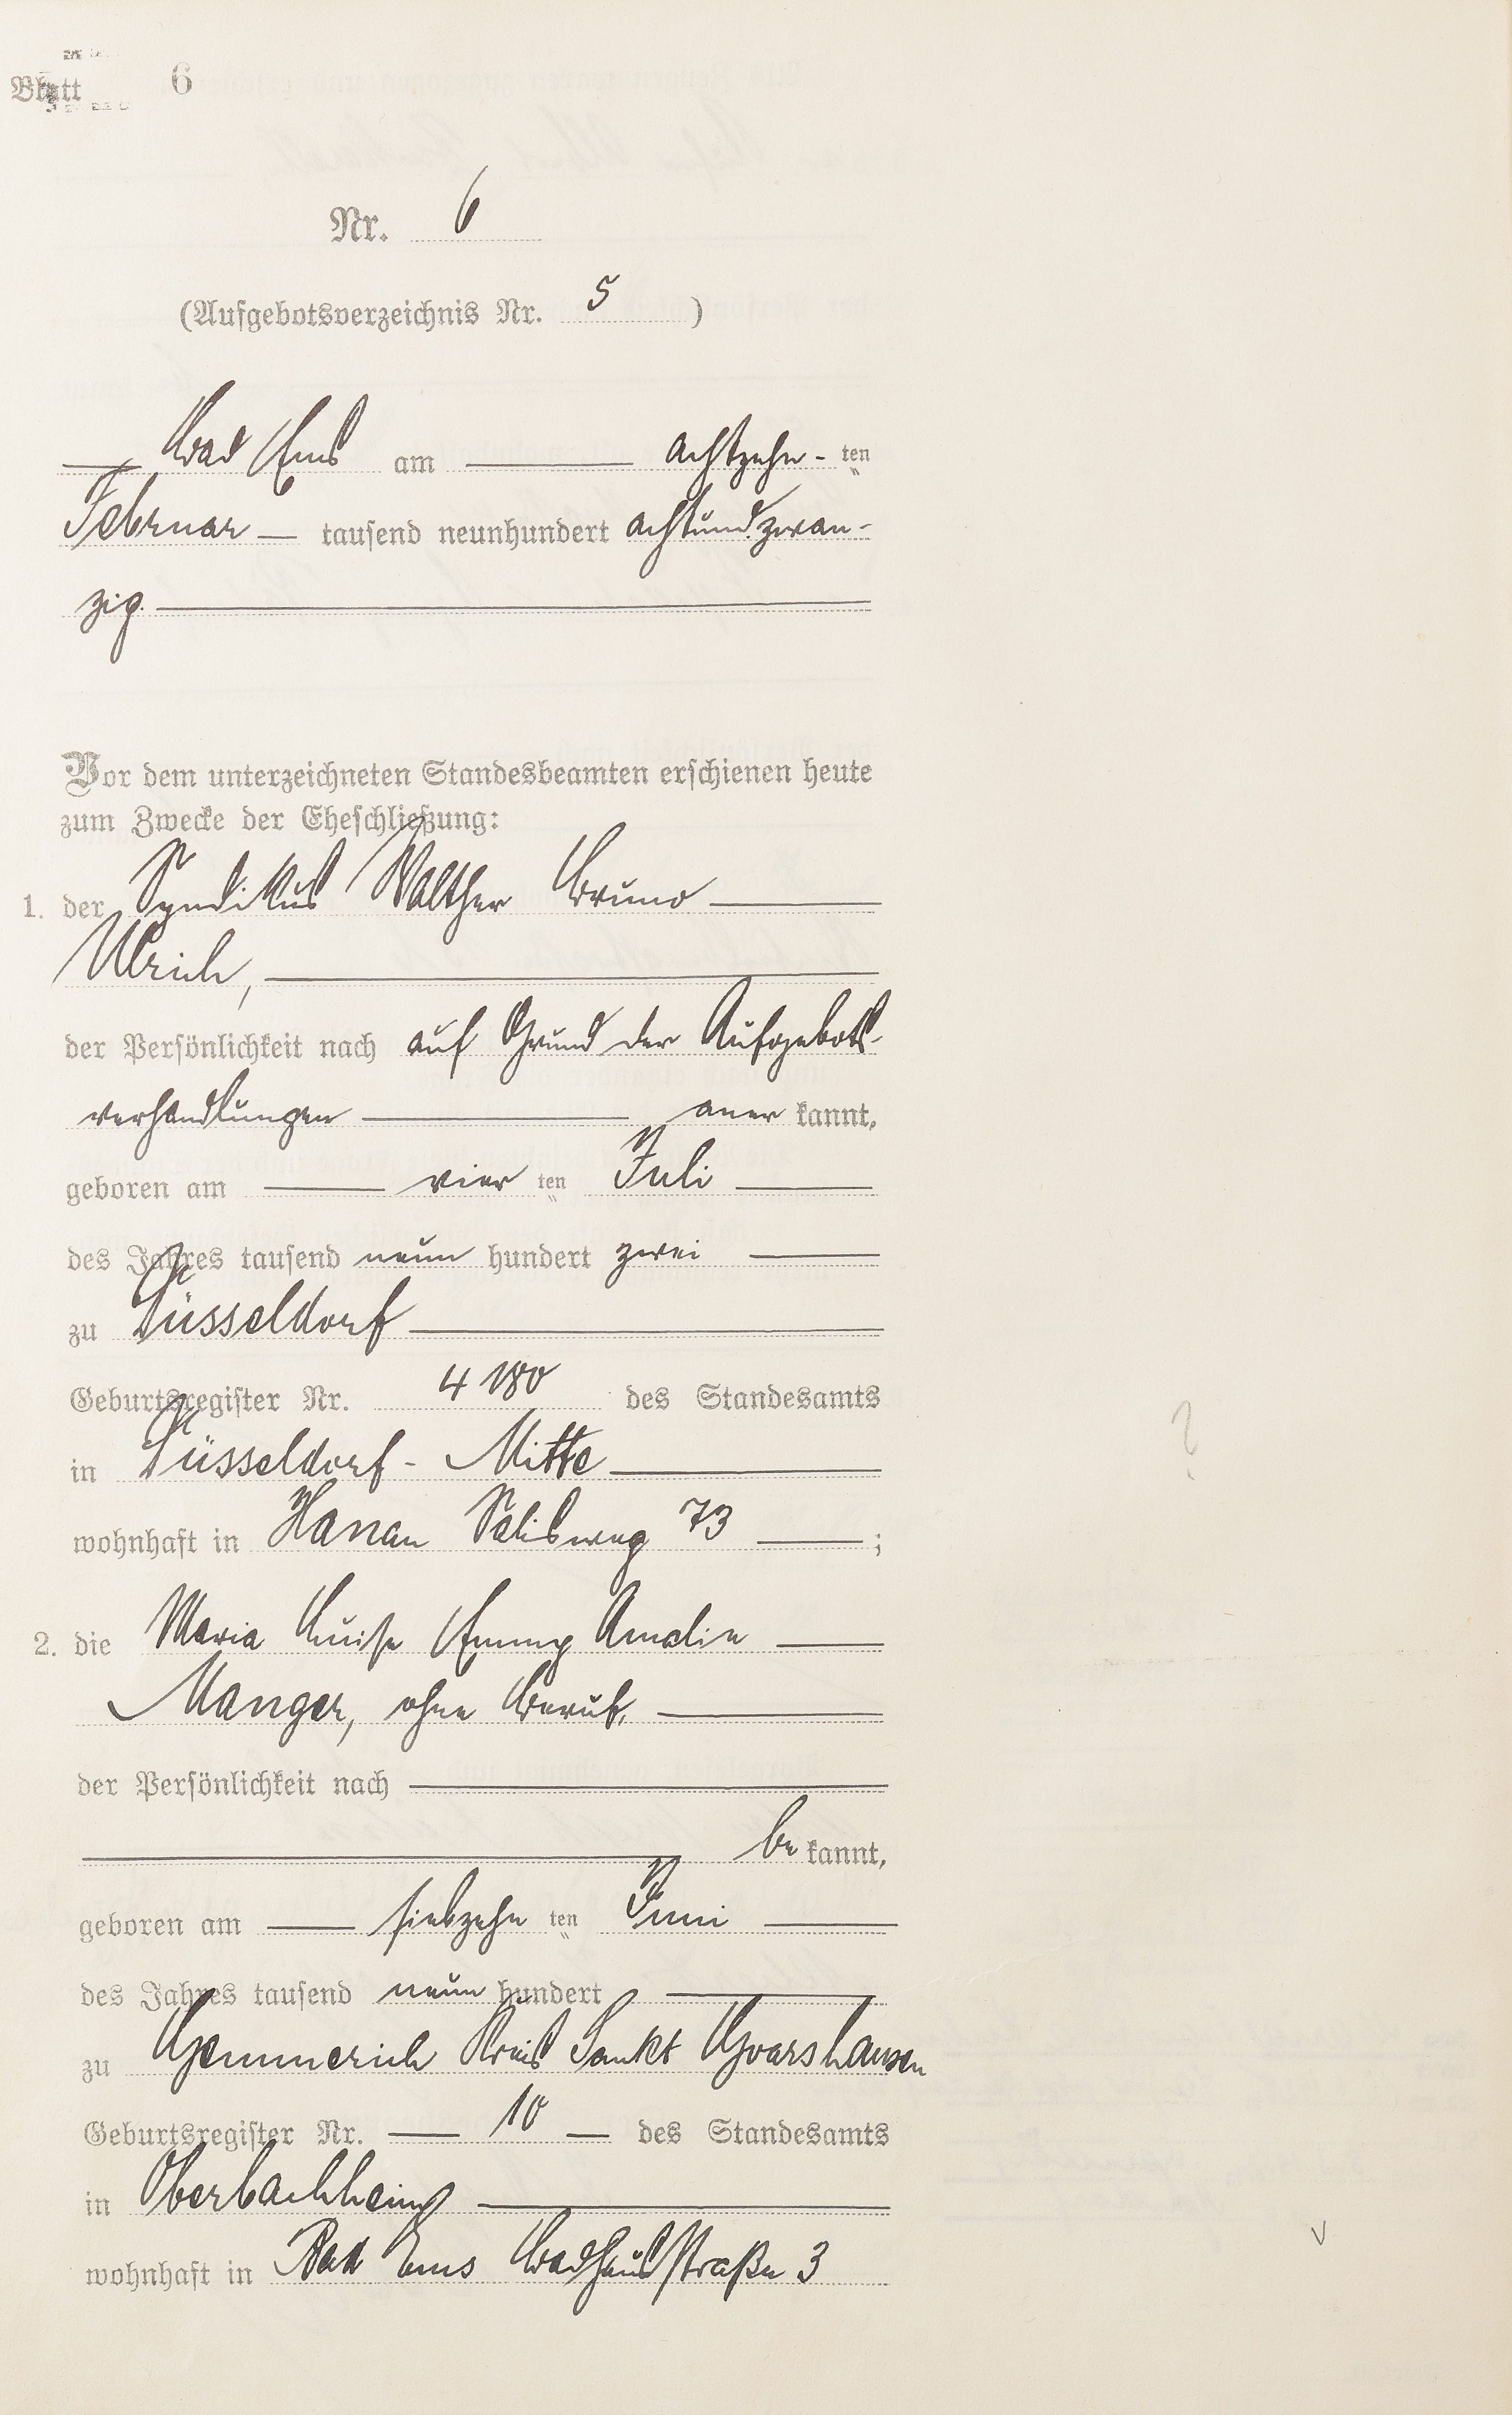 Blatt 6
Nr. 6
(Aufgebotsverzeichnis Nr. 5)
Bad Ems am achtzehn-ten
Februar tausend neunhundert achtundzwan-
zig.
Vor dem unterzeichneten Standesbeamten erschienen heute
zum Zwecke der Eheschließung:
1. der Syndikus Walther Bruno
Ulrich,
der Persönlichkeit nach auf Grund der Aufgebots-
verhandlungen anerkannt,
geboren am vierten Juli
des Jahres tausend neunhundert zwei
zu Düsseldorf
Geburtsregister Nr. 4180 des Standesamts
in Düsseldorf-Mitte
wohnhaft in Hanau Salisweg 73;
2. die Maria Luise Emmy Amalie
Manger, ohne Beruf,
der Persönlichkeit nach
bekannt,
geboren am siebzehnten Juni
des Jahres tausend neunhundert
zu Gemmerich Kreis Sankt Goarshausen
Geburtsregister Nr. 10 des Standesamts
in Oberbachheim
wohnhaft in Bad Ems Badhausstraße 3
?
v